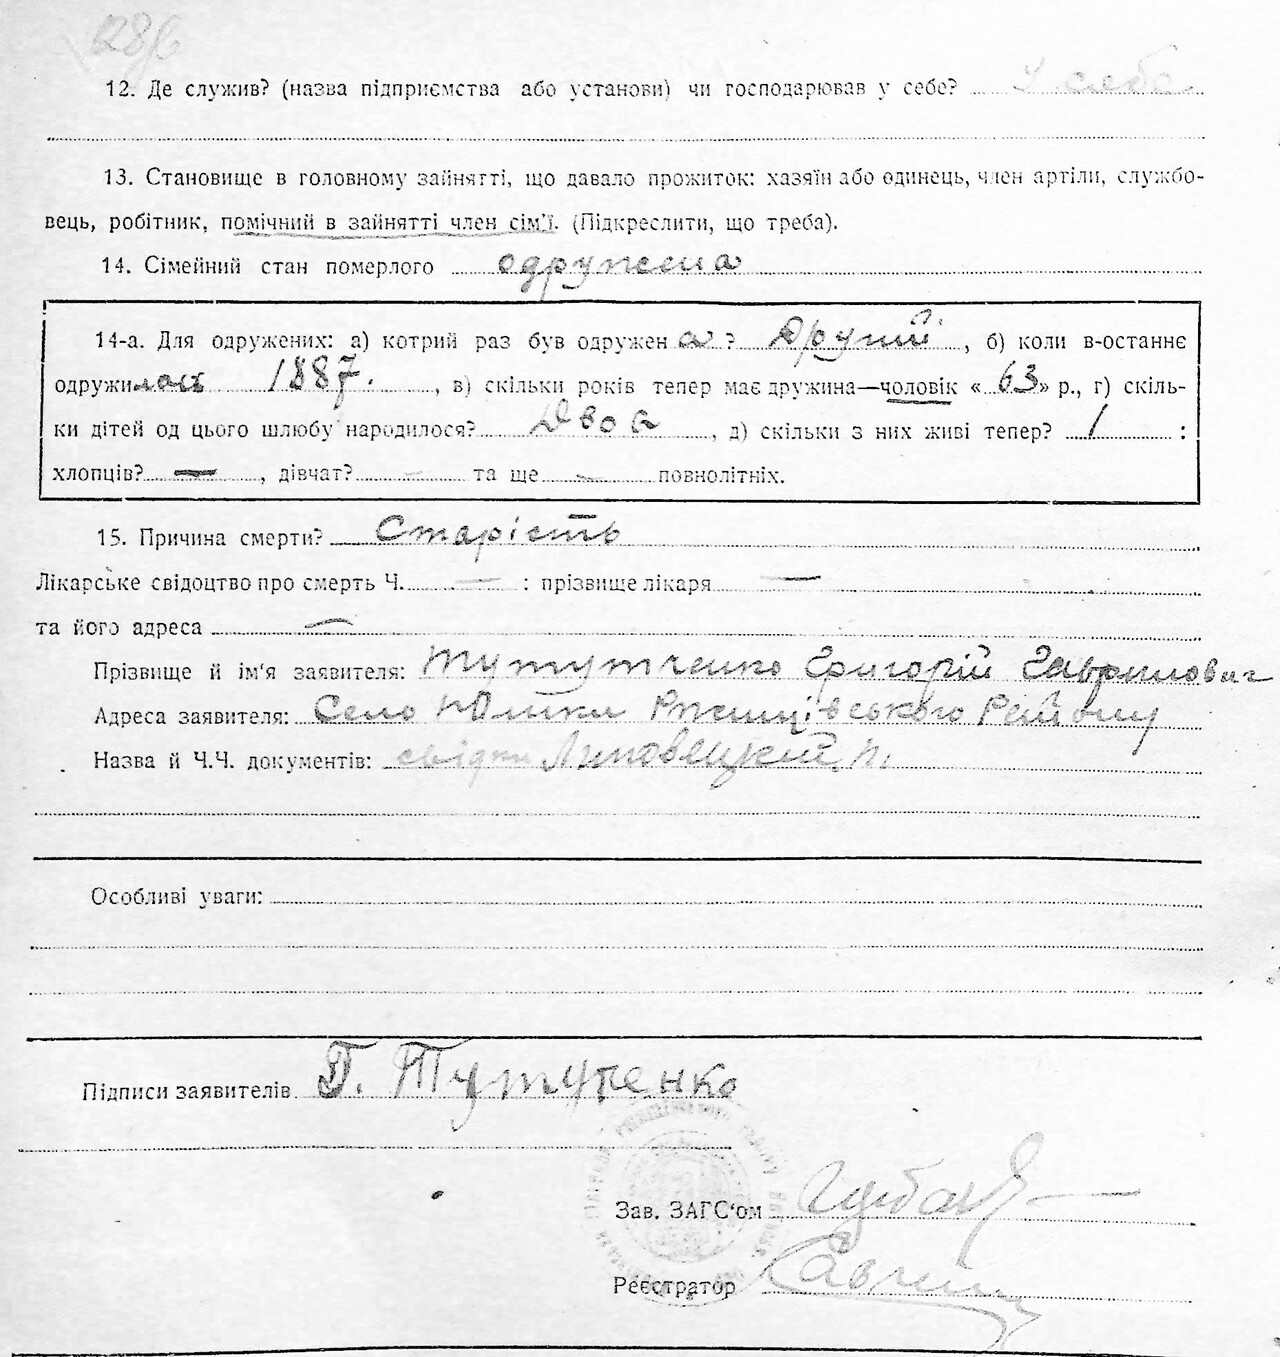 12. Де служив? (назва підприємства або установи) чи господарював у себе? У себе
13. Становище в головному зайнятті, що давало прожиток: хазяїн або одинець, член артіли, службо-
вець, робітник, помічний в зайнятті член сім'ї. (Підкреслити, що треба).
14. Сімейний стан померлого одружена
14-а. Для одружених: а) котрий раз був одружен а? Другий, б) коли в-останнє
одружилась 1887., в) скільки років тепер має дружина—чоловік «63» р., г) скіль-
ки дітей од цього шлюбу народилося? Двоє, д) скільки з них живі тепер? 1 :
хлопців? —, дівчат? — та ще — повнолітніх.
15. Причина смерти? Старість
Лікарське свідоцтво про смерть Ч. — : прізвище лікаря —
та його адреса —
Прізвище й ім'я заявителя: Григорій Гаврилович
Адреса заявителя: Село Юшки Ржищівського Району
Назва й Ч.Ч. документів: свідки Липовецкий П.
Особливі уваги:
Підписи заявителів Г. Тутученко
Зав. ЗАГС'ом
Реєстратор